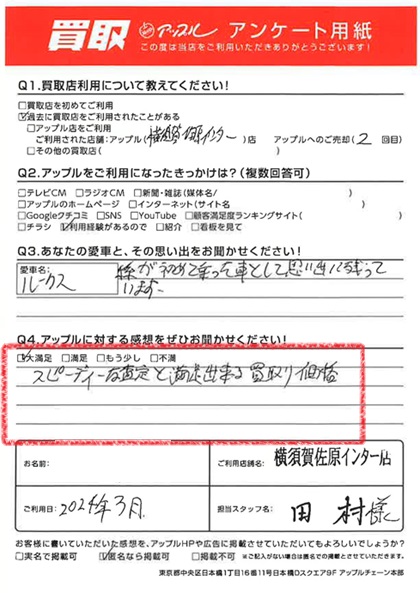 買取 アップル アンケート用紙
この度は当店をご利用いただきありがとうございます!
Q1.買取店利用について教えてください!
□買取店を初めてご利用
☑過去に買取店をご利用されたことがある
□アップル店をご利用
ご利用された店舗:アップル(横須賀佐原インター)店 アップルへのご売却(2回目)
□その他の買取店( )
Q2.アップルをご利用になったきっかけは?(複数回答可)
□テレビCM □ラジオCM □新聞・雑誌(媒体名/ )
□アップルのホームページ □インターネット(サイト名 )
□Googleクチコミ □SNS □YouTube □顧客満足度ランキングサイト( )
□チラシ ☑利用経験があるので □紹介 □看板を見て
Q3.あなたの愛車と、その思い出をお聞かせください!
愛車名
ルークス
孫が初めて乗った車として思い出に残って
います。
Q4.アップルに対する感想をぜひお聞かせください!
☑大満足 □満足 □もう少し □不満
スピーディーな査定と満足出来る買取り価格
お名前:
ご利用店舗名: 横須賀佐原インター店
ご利用日: 2024年3月
担当スタッフ名: 田村様
お客様に書いていただいた感想を、アップルHPや広告に掲載させていただいてもよろしいでしょうか?
□実名で掲載可 ☑匿名なら掲載可 □掲載不可 ※ご記入がない場合は匿名での掲載とさせていただきます。
東京都中央区日本橋1丁目16番11号日本橋Dスクエア9F アップルチェーン本部